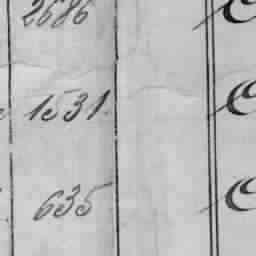 2686
1531.
635